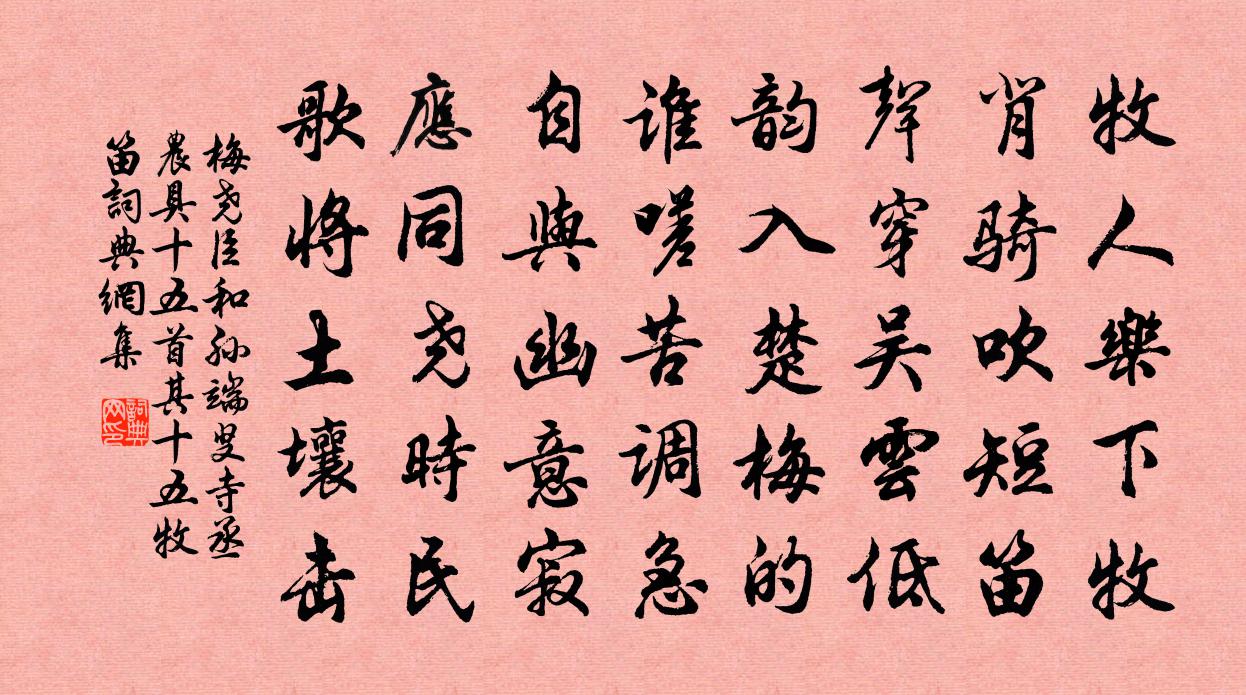 牧人樂下牧
背骑吹短笛
聲穿吴雲低
韵入楚梅的
谁嗟苦调急
自與幽意寂
應同尧時民
歌将土壤击
梅尧臣和孙端叟寺丞
農具十五首其十五牧
笛詞典網集
詞典
网印